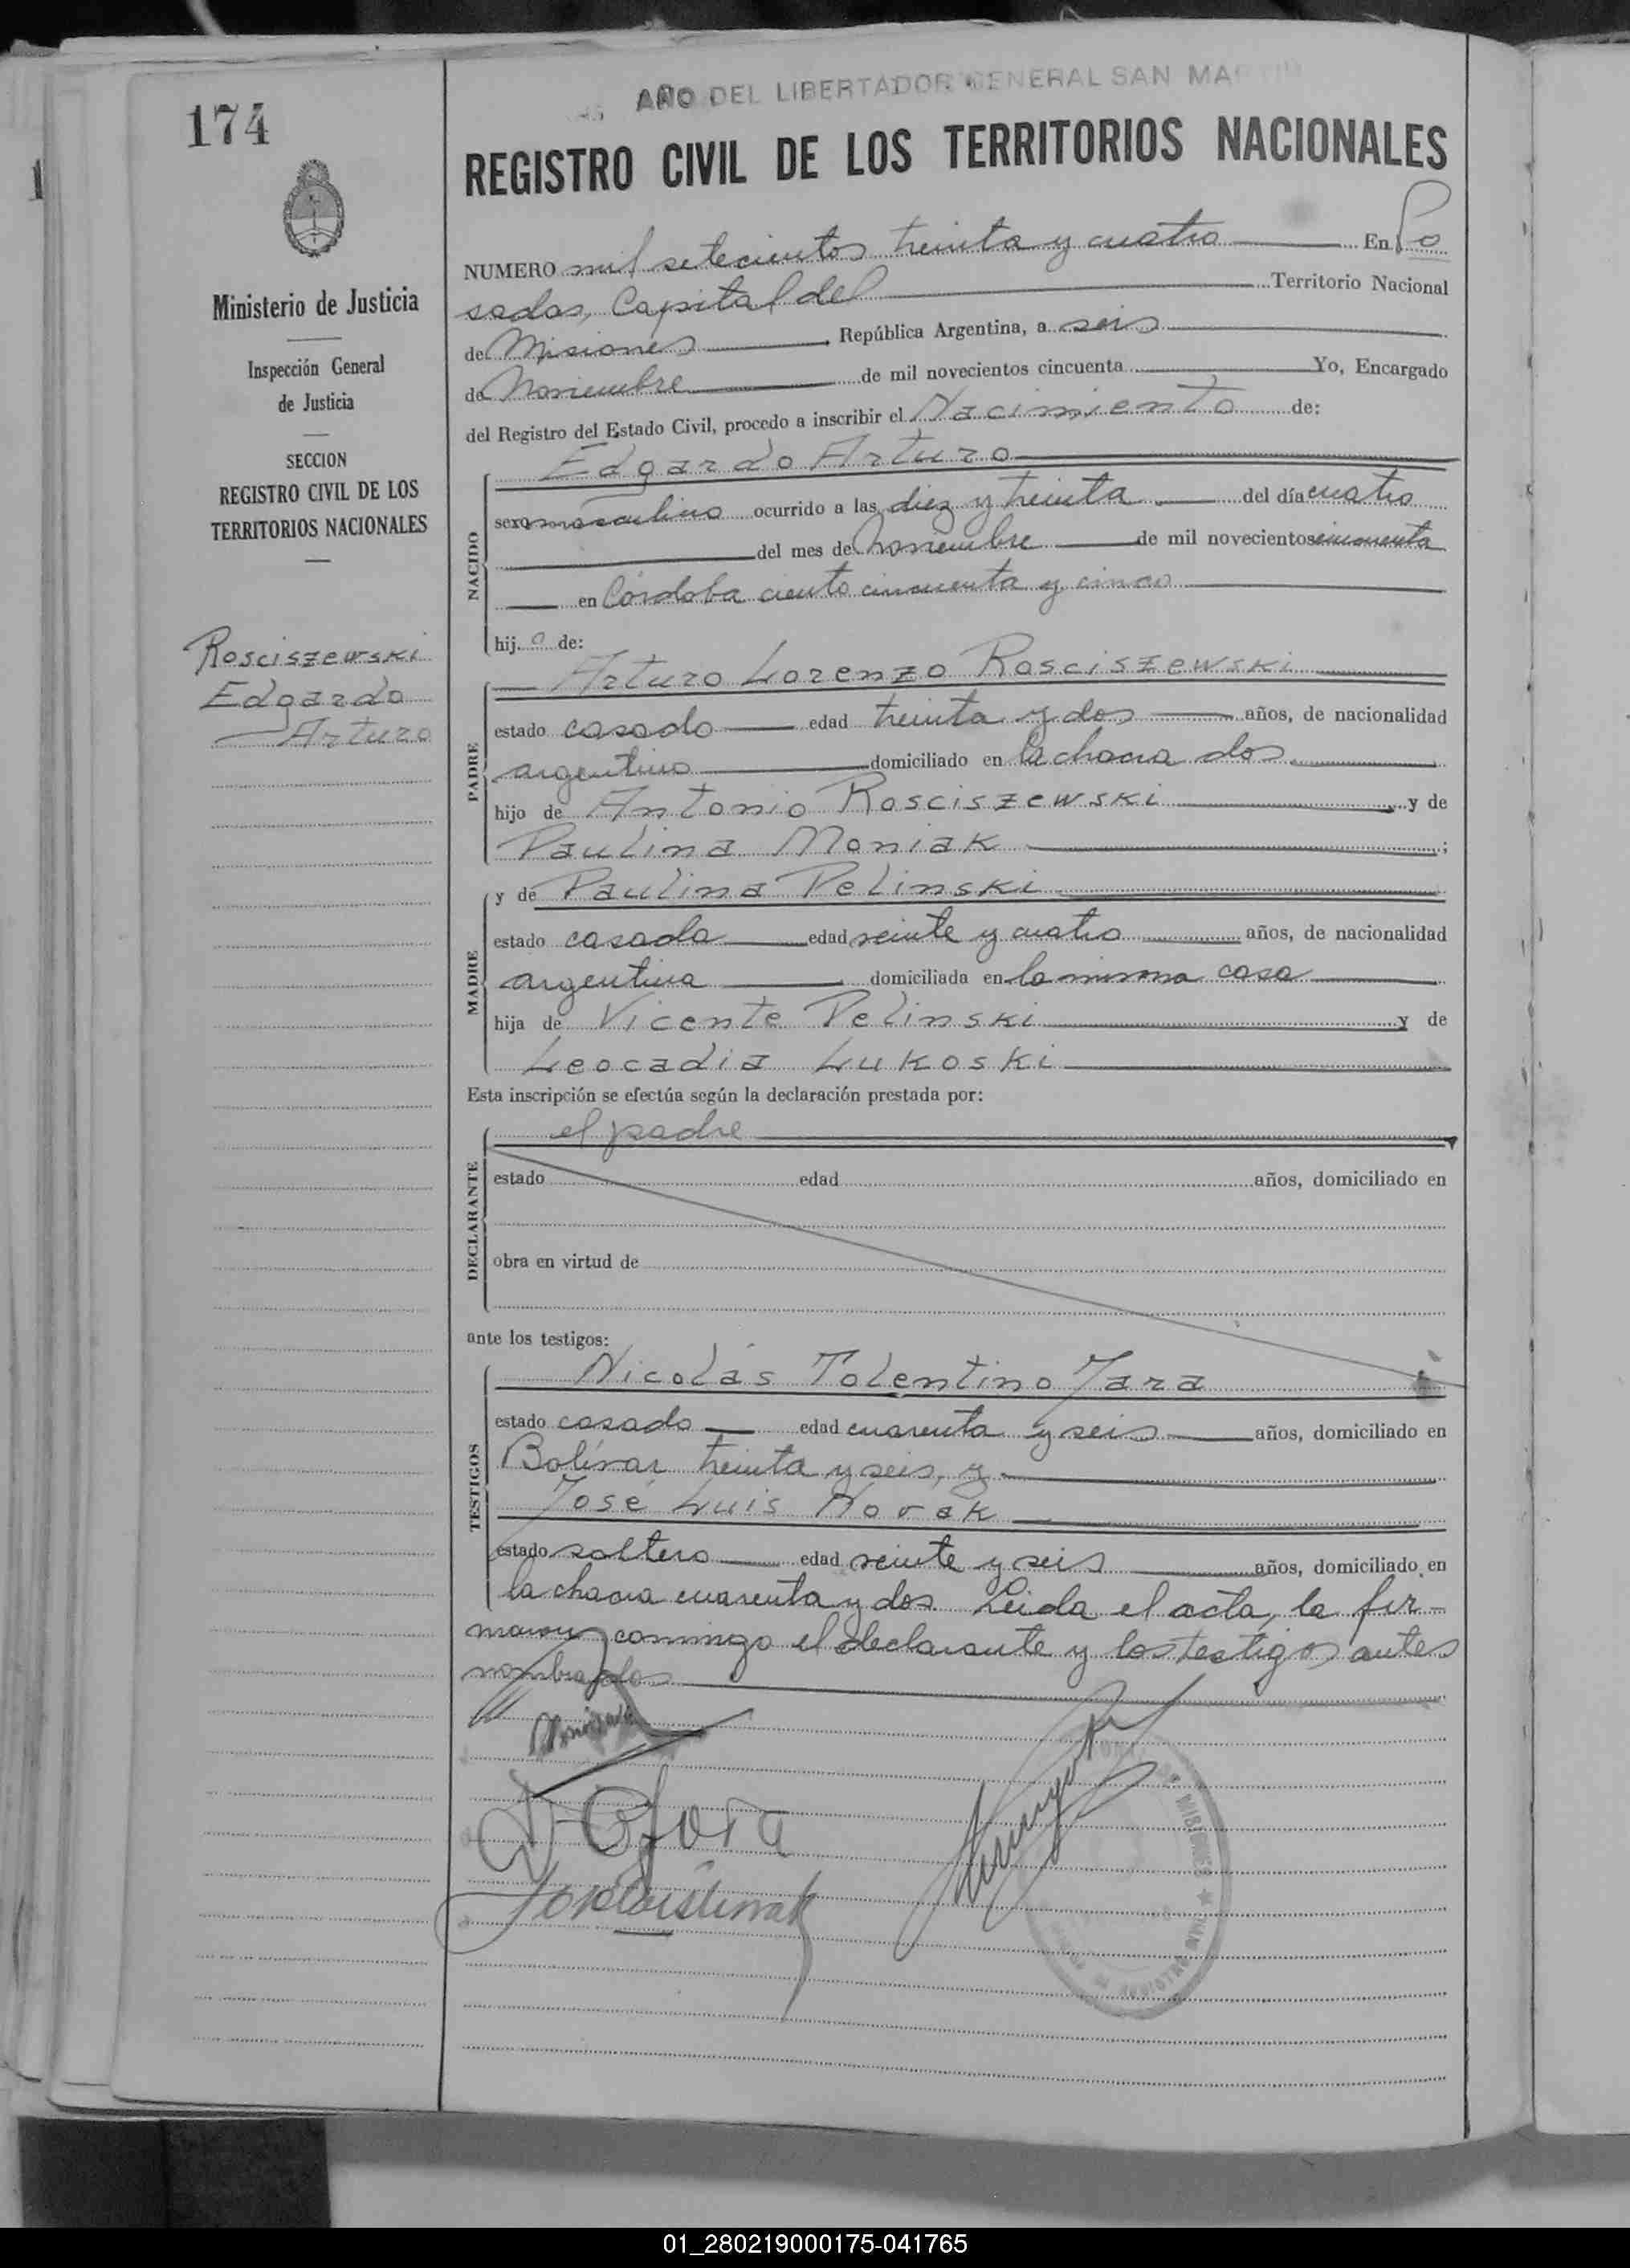 174
Ministerio de Justicia
Inspección General
de Justicia
SECCION
REGISTRO CIVIL DE LOS
TERRITORIOS NACIONALES
Rosciszewski
Edgardo
Arturo
AÑO DEL LIBERTADOR GENERAL SAN MA
REGISTRO CIVIL DE LOS TERRITORIOS NACIONALES
NUMERO mil setecientos treinta y cuatro En Po
sadas, Capital del Territorio Nacional
de Misiones República Argentina, a seis
de Noviembre de mil novecientos cincuenta Yo, Encargado
del Registro del Estado Civil, procedo a inscribir el Nacimiento de:
Edgardo Arturo
NACIDO
sexo masculino ocurrido a las diez y treinta del día cuatro
del mes de Noviembre de mil novecientos cincuenta
en Córdoba ciento cincuenta y cinco
hij o de:
Arturo Lorenzo Rosciszewski
PADRE
estado casado edad treinta y dos años, de nacionalidad
argentino domiciliado en la chacra dos
hijo de Antonio Rosciszewski y de
Paulina Moniak ;
y de Paulina Pelinski
MADRE
estado casada edad veinte y cuatro años, de nacionalidad
argentina domiciliada en la misma casa
hija de Vicente Pelinski y de
Leocadia Lukoski
Esta inscripción se efectúa según la declaración prestada por:
el padre
DECLARANTE
estado edad años, domiciliado en
obra en virtud de
ante los testigos:
Nicolás Tolentino Jara
TESTIGOS
estado casado edad cuarenta y seis años, domiciliado en
Bolívar treinta y seis, y
José Luis Novak
estado soltero edad veinte y seis años, domiciliado en
la chacra cuarenta y dos. Leida el acta, la fir-
maron conmigo el declarante y los testigos antes
nombrados
MISIONES
01_280219000175-041765